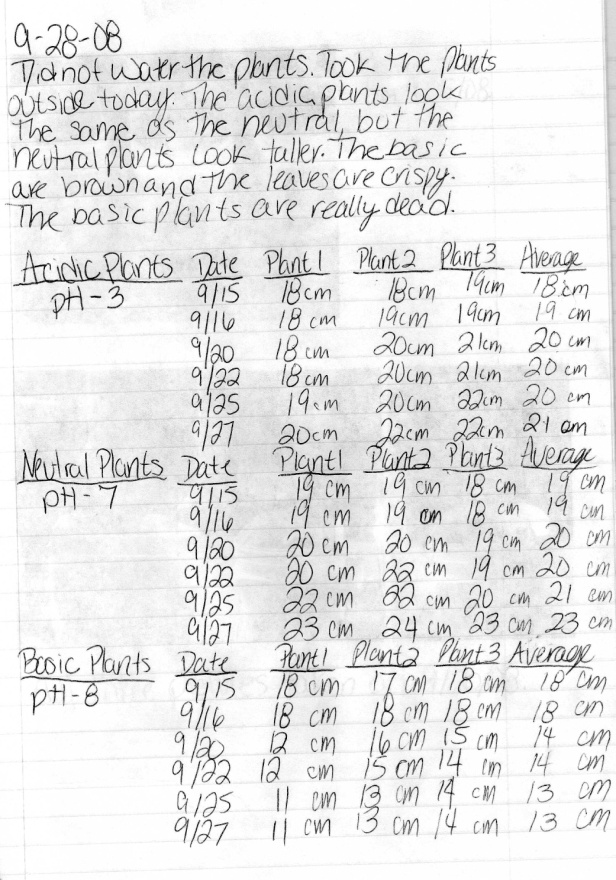 9-28-08
Did not water the plants. Took the plants
outside today. The acidic plants look
the same as the neutral, but the
neutral plants look taller. The basic
are brown and the leaves are crispy.
The basic plants are really dead.
Acidic Plants Date Plant 1 Plant 2 Plant 3 Average
pH-3 9/15 18cm 18cm 19cm 18cm
9/16 18 cm 19cm 19cm 19 cm
9/20 18 cm 20cm 21cm 20 cm
9/22 18cm 20cm 21cm 20 cm
9/25 19cm 20cm 22cm 20 cm
9/27 20cm 22cm 22cm 21 cm
Neutral Plants Date Plant1 Plant2 Plant3 Average
pH-7 9/15 19 cm 19 cm 18 cm 19 cm
9/16 19 cm 19 cm 18 cm 19 cm
9/20 20 cm 20 cm 19 cm 20 cm
9/22 20 cm 22 cm 19 cm 20 cm
9/25 22 cm 22 cm 20 cm 21 cm
9/27 23 cm 24 cm 23 cm 23 cm
Basic Plants Date Pant1 Plant2 Plant3 Average
pH-8 9/15 18 cm 17 cm 18 cm 18 cm
9/16 18 cm 18 cm 18 cm 18 cm
9/20 12 cm 16 cm 15 cm 14 cm
9/22 12 cm 15 cm 14 cm 14 cm
9/25 11 cm 13 cm 14 cm 13 cm
9/27 11 cm 13 cm 14 cm 13 cm